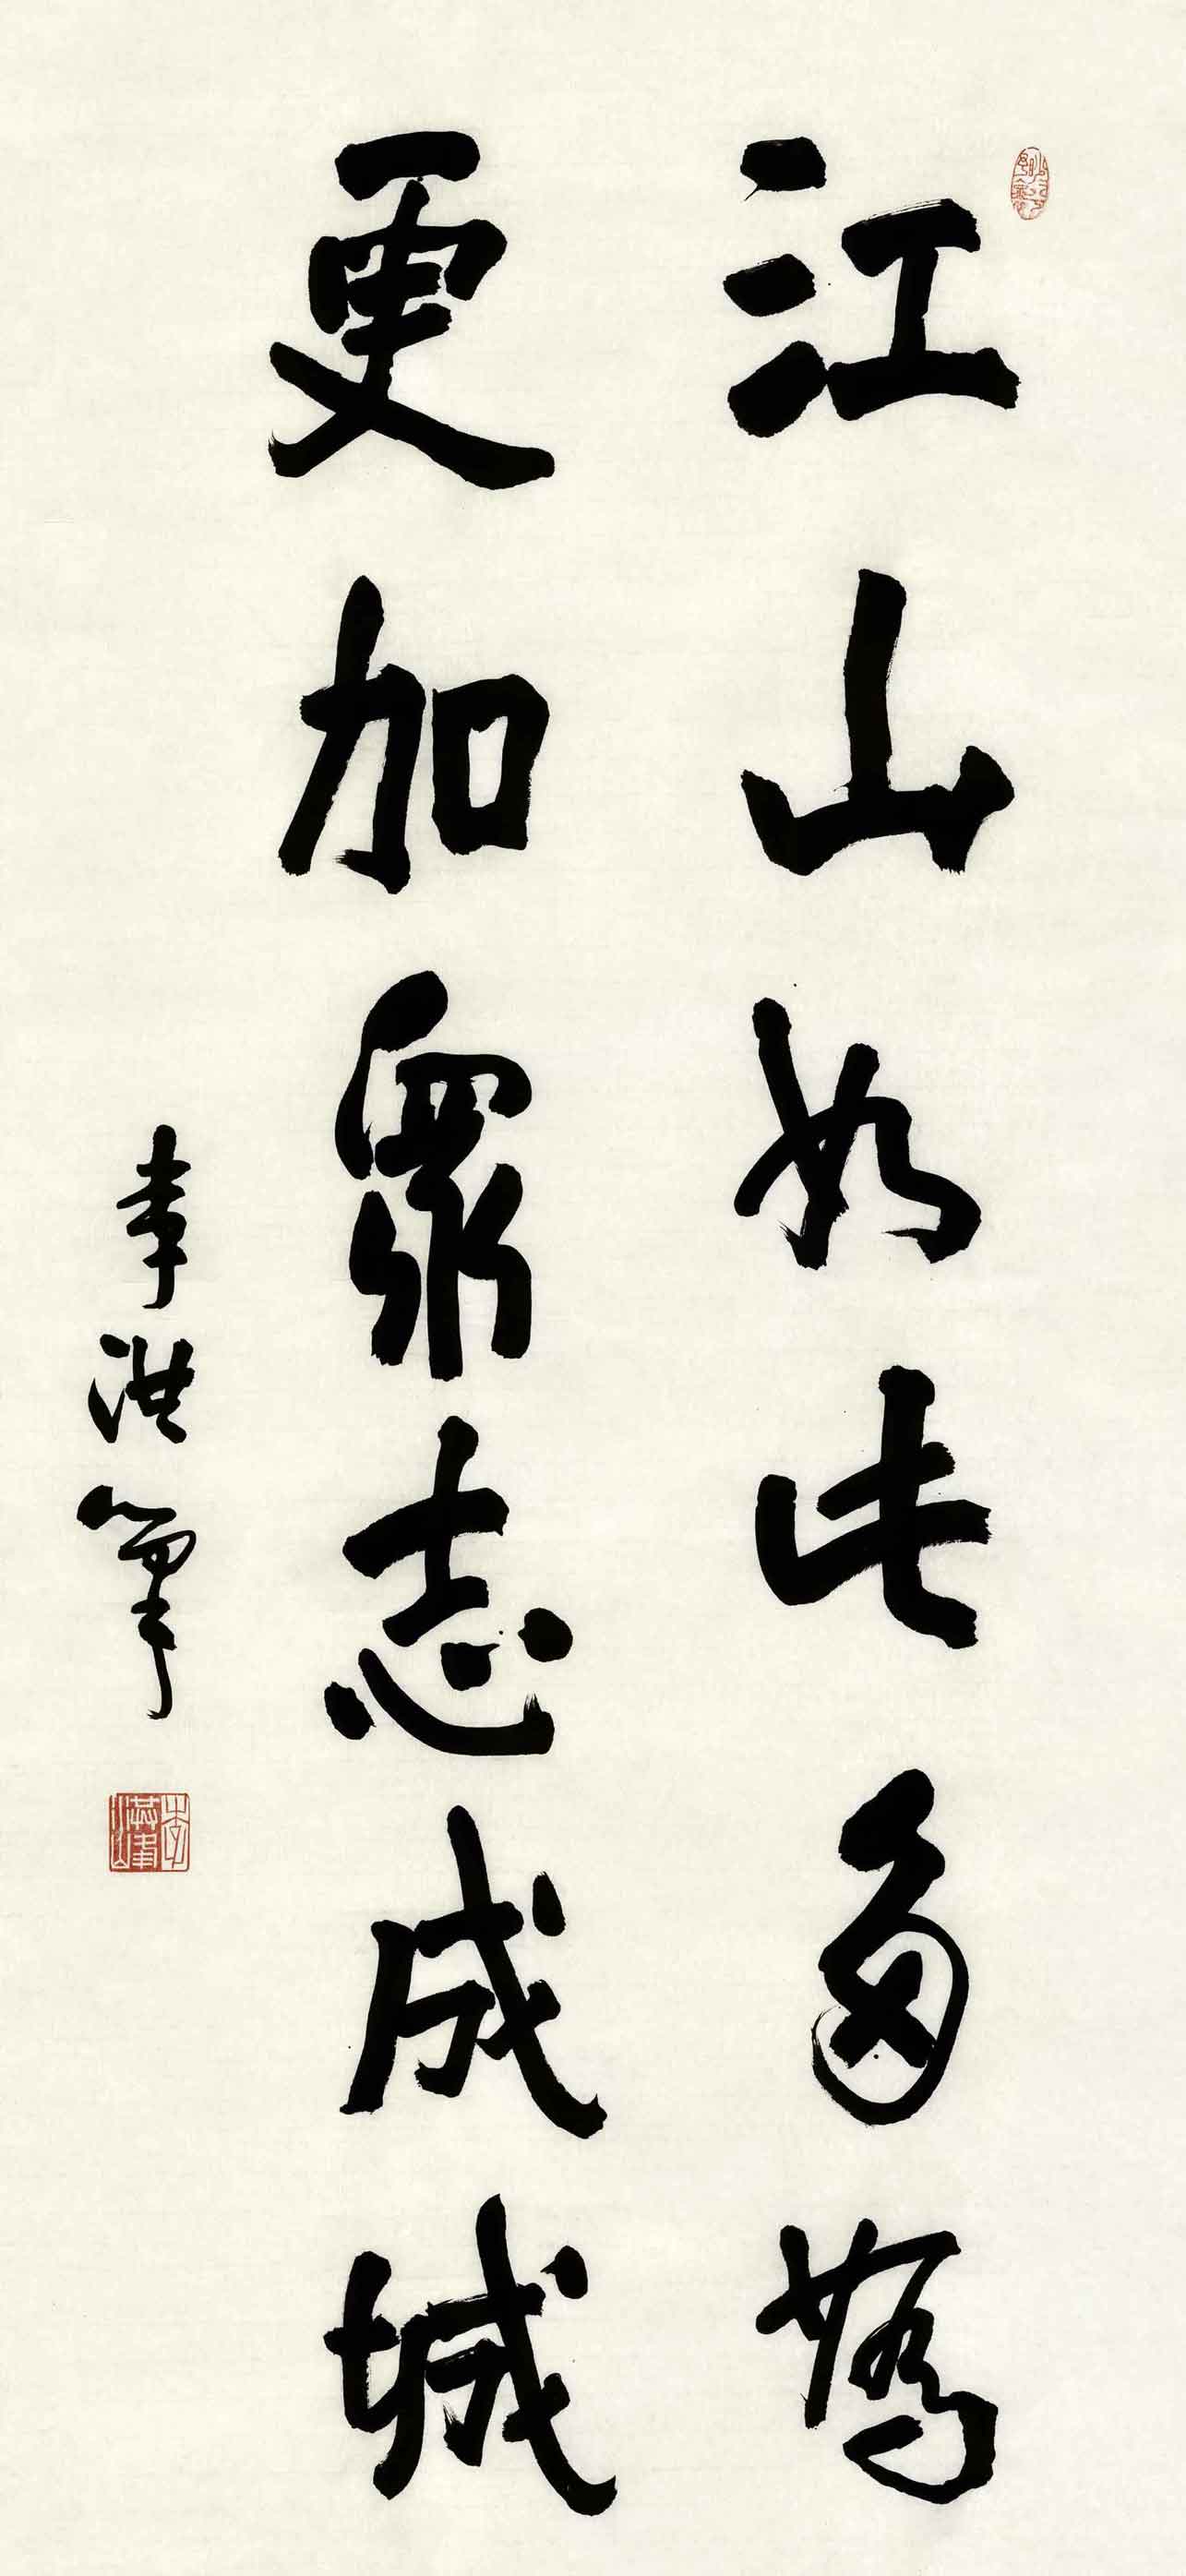 江山如此多嬌
更加眾志成城
李洪筆